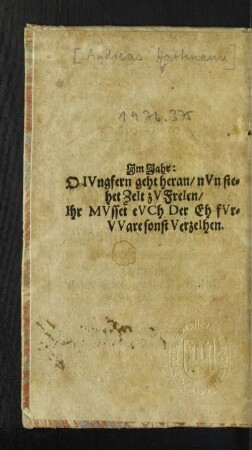 [Andreas Hartmann]
1976.375
Im Jahr:
O IVngfern geht heran/ nVn ste-
het ZeIt zV FreIen/
Ihr MVsset eVCh Der Eh fVr-
VVare sonst VerzeIhen.